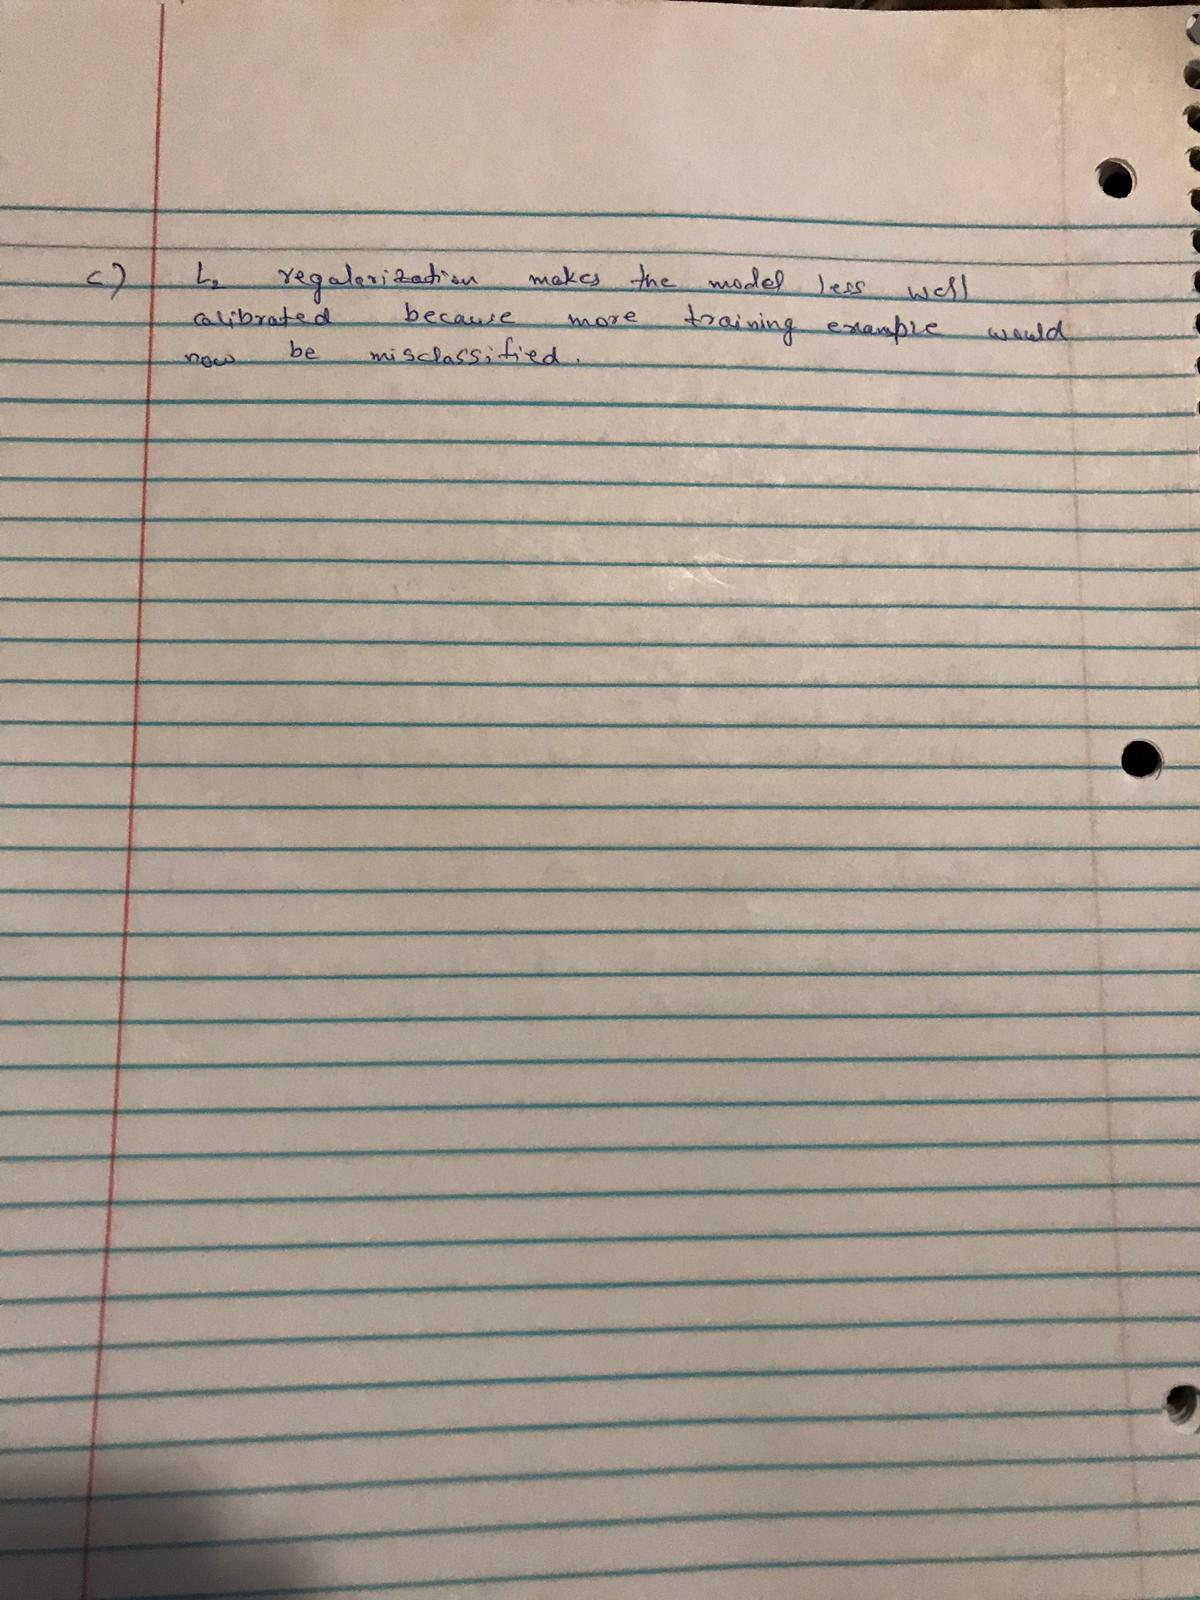 c) L₂ regularization makes the model less well
calibrated because more training example would
now be misclassified.